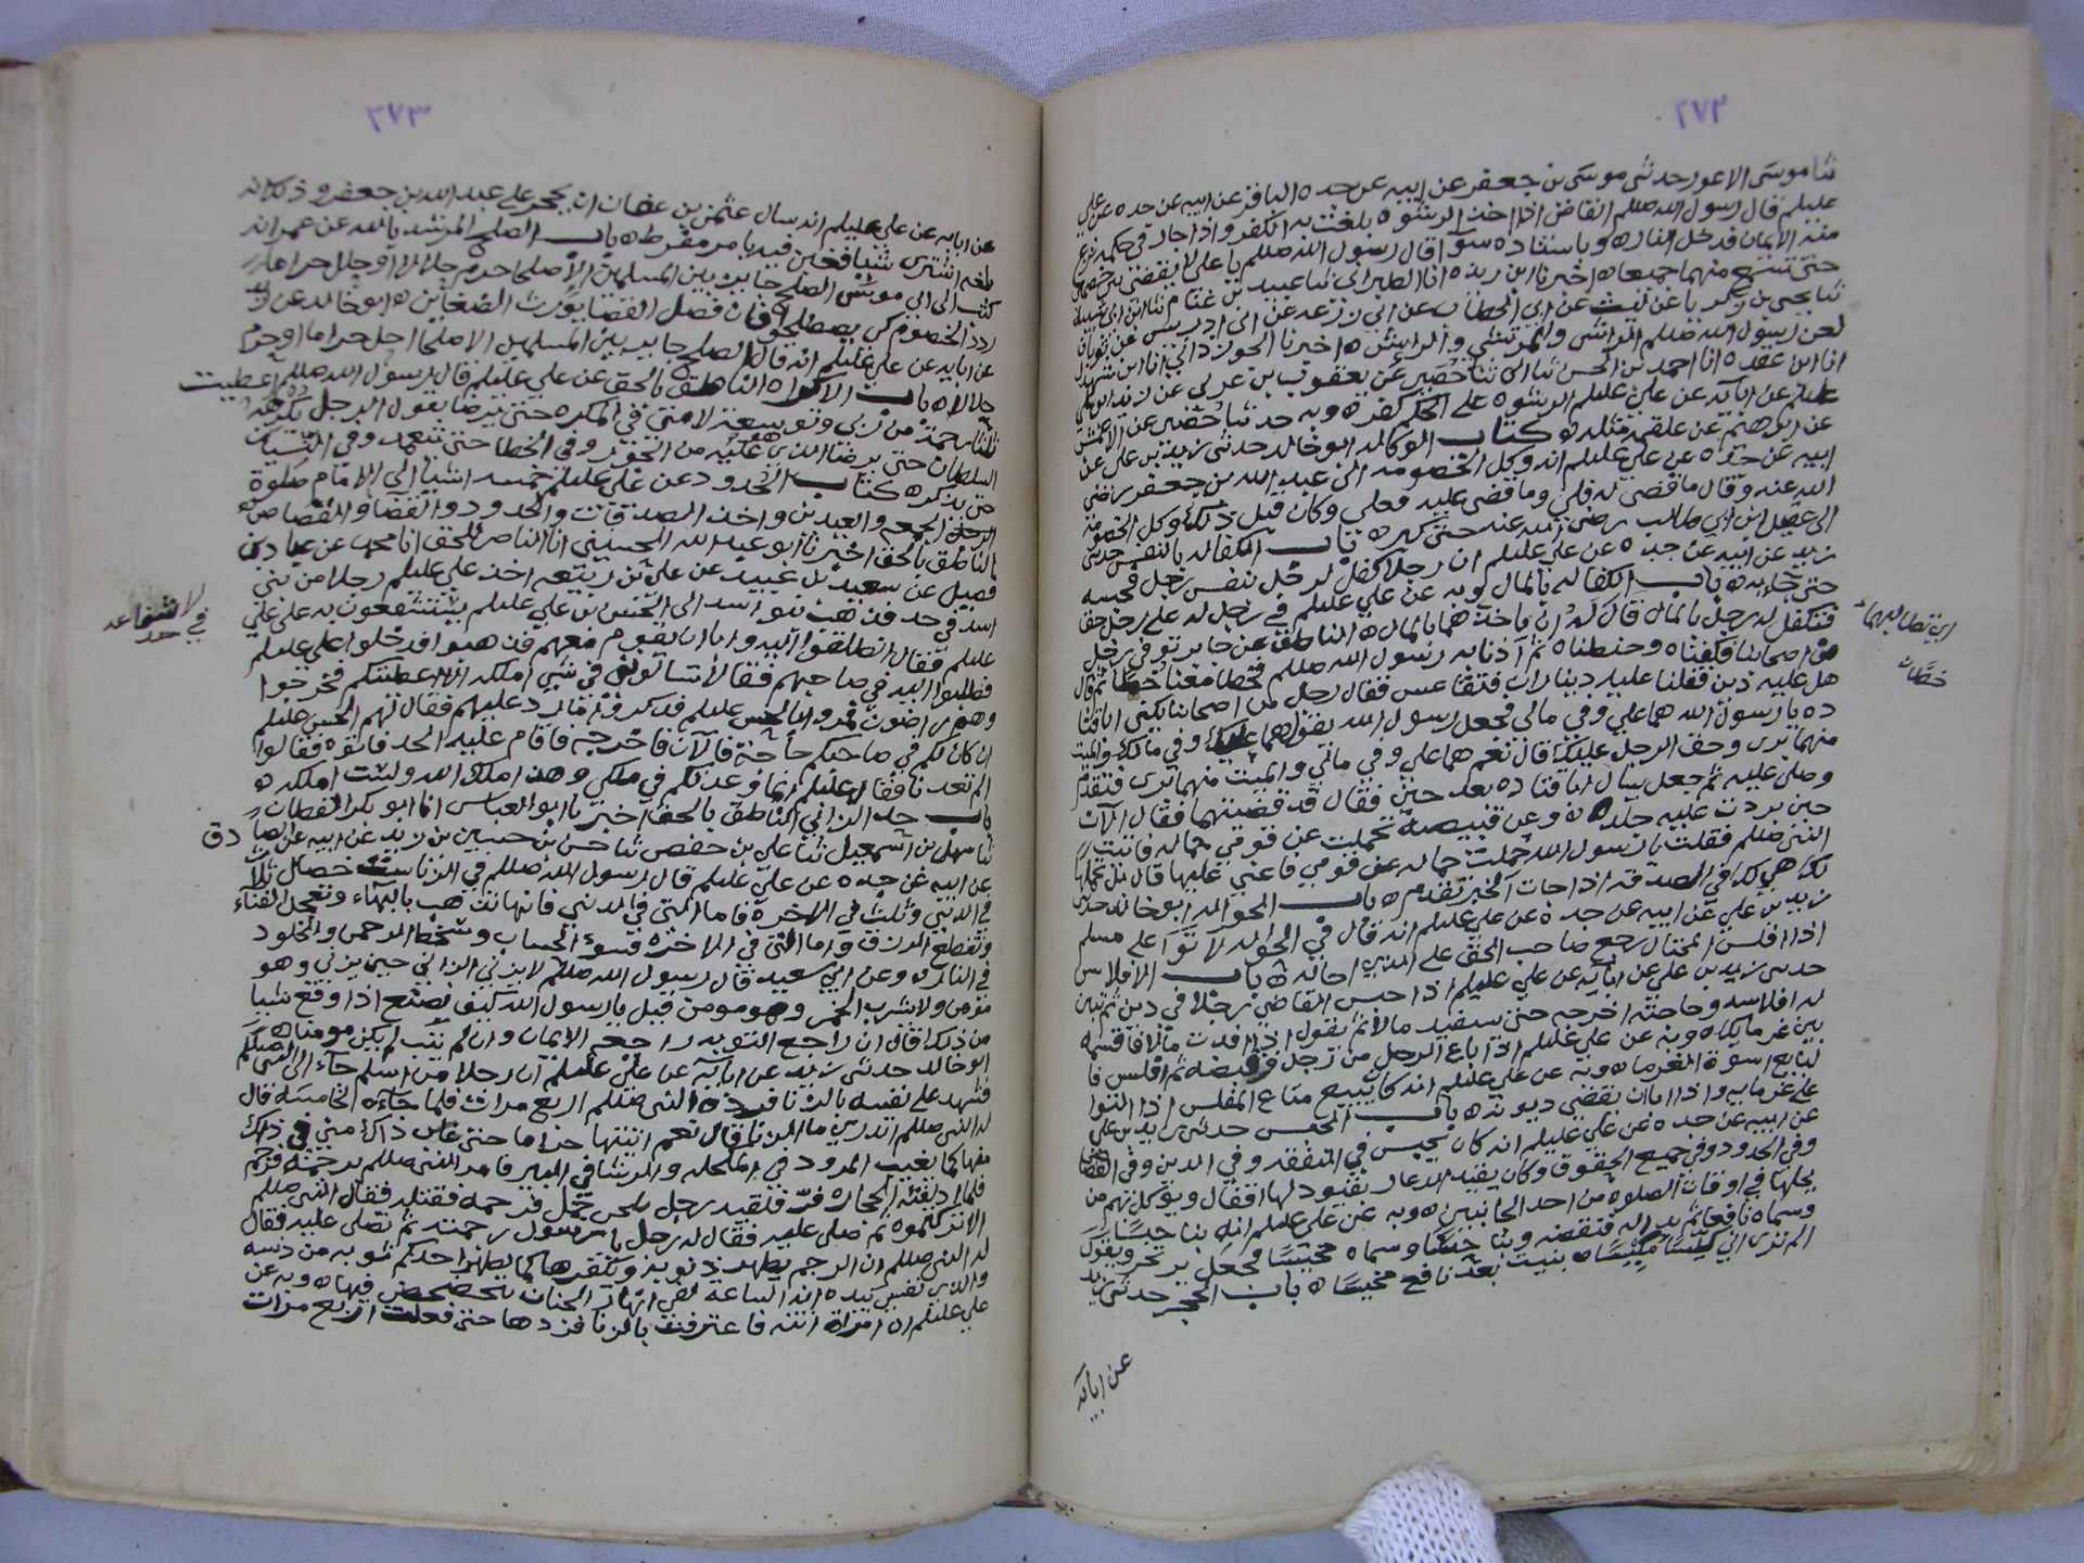 ٢٧٢
ثنا موسى الاعور حدثني موسى بن جعفر عن ابيه عن جده الباقر عن ابيه عن جده عن علي
عليلم قال رسول الله صللم القاضي اذا اخذ الرشوه بلغت به الكفر واذا جار في حكمه نزع
منه الايمان فدخل النار ه وباسناده سوآ قال رسول الله صللم يا علي لا تقضي بين خصمين
حتى تسمع منهما جميعا ه اخبرنا ابن ريذه انا الطبراني ثنا عبيد بن غنام ثنا ابن ابي شيبه
ثنا يحيى بن زكريا عن ليث عن ابي الخطاب عن ابي زرعه عن ابي ادريس عن ثوبان
لعن رسول الله صللم الراشي والمرتشي والرايش ه اخبرنا الجوزداني انا ابن شهدل
انا ابن عقده انا احمد بن الحسن ثنا ابي ثنا حصين عن يعقوب بن عربي عن زيد بن علي
عليلم عن ابآيه عن علي عليلم الرشوه على الحكم كفر ه وبه حدثنا حصين عن الاعمش
عن ابرهيم عن علقمه مثله ه كتاب الوكاله ابو خالد حدثني زيد بن علي عن
ابيه عن جده عن علي عليلم انه وكل الخصومه الى عبد الله بن جعفر رضي
الله عنه وقال ما قضي له فلي وما قضي عليه فعلي وكان قبل ذلك وكل الخصومه
الى عقيل بن ابي طالب رضي الله عنه حتى كبر ه باب الكفاله بالنفس حدثني
زيد عن ابيه عن جده عن علي عليلم ان رجلا كفل لرجل بنفس رجل فحبسه
حتى جاء به ه باب الكفاله بالمال وبه عن علي عليلم في رجل له على رجل حق
فتكفل له رجل بالمال قال له ان ياخذهما بالمال ه الناطق عن جابر توفي رجل
من اصحابنا فكفناه وحنطناه ثم آذنا به رسول الله صللم فخطا معنا خطا ثم قال
هل عليه دين فقلنا عليه ديناران فتقاعس فقال رجل من اصحابنا يكنى ابا قتا
ده يا رسول الله هما علي وفي مالي فجعل رسول الله يقول هما عليك وفي مالك والميت
منهما بري وحق الرجل عليك قال نعم هما علي وفي مالي والميت منهما بري فتقدم
وصلى عليه ثم جعل يسال ابا قتاده بعد حين فقال قد قضيتهما فقال الآن
حين بردت عليه جلده ه وعن قبيصه تحملت عن قومي حماله فاتيت
النبي صللم فقلت يا رسول الله تحملت حماله عن قومي فاعني عليها قال بل نحملها
لك هي لك في الصدقه اذا جات الخبر تقدم ه باب الحواله ابو خالد حدثني
زيد بن علي عن ابيه عن جده عن علي عليلم انه قال في الحواله لا توآ على مسلم
اذا افلس المحتال رجع صاحب الحق على الذي احاله ه باب الافلاس
حدثني زيد بن علي عن ابآيه عن علي عليلم اذا حبس القاضي رجلا في دين ثم تبين
له افلاسه وحاجته اخرجه حتى يستفيد مالا ثم يقول اذا افدت مالا فاقسمه
بين غرمايك ه وبه عن علي عليلم اذا باع الرجل من رجل فقبضه ثم افلس فا
لبايع اسوة الغرما ه وبه عن علي عليلم انه كان يبيع متاع المفلس اذا التوا
على غرمايه واذا ابا ان يقضي ديونه ه باب الحبس حدثني زيد بن علي
عن ابيه عن جده عن علي عليلم انه كان يحبس في النفقه وفي الدين وفي القصاص
وفي الحدود وفي جميع الحقوق وكان يقيد الدعار بقيود لها اقفال ويوكل بهم من
يحلها في اوقات الصلوه من احد الجانبين ه وبه عن علي عليلم انه بنا حبسًا
وسماه نافعا ثم بدا له فنقضه وبنا حبسًا وسماه مخيسًا فجعل يرتجز ويقول
الم تراني كيّسًا مكيّسًا ه بنيت بعد نافع مخيسًا ه باب الحجر حدثني زيد
عن ابايه
خطًا
٢٧٣
عن ابايه عن علي عليلم انه سال عثمن بن عفان ان يحجر على عبد الله بن جعفر وذلك انه
بلغه اشترى شيا فغبن فيه بامر مفرط ه باب الصلح المرشد بالله عن عمر انه
كتب الى ابي موسى الصلح جايز بين المسلمين الا صلحا حرم حلالا او حلل حراما
ردد الخصوم كي يصطلحوا فان فصل القضا يورث الضغاين ه ابو خالد عن زيد
عن ابايه عن علي عليلم انه قال الصلح جايز بين المسلمين الا صلحا احل حراما او حرم
حلالا ه باب الاكراه الناطق بالحق عن علي عليلم قال رسول الله صللم اعطيت
ثلثا رحمة من ربي وتوسعة لامتي في المكره حتى يرضا يقول الرجل يكرهه
السلطان حتى يرضا الذي هو عليه من الجور وفي الخطا حتى يتعمد وفي النسيان
حتى يذكر ه كتاب الحدود عن علي عليلم خمسه اشيآ الى الامام صلوة
الجمعه والعيدين واخذ الصدقات والحدود والقضآ والقصاص ه
الناطق بالحق اخبرنا ابو عبد الله الحسيني انا الناصر للحق انا محمد عن عباد بن
فضيل عن سعيد بن عبيد عن علي بن ربيعه اخذ علي عليلم رجلا من بني
اسد في حد فذهب بنو اسد الى الحسن بن علي عليلم يستشفعون به على علي
عليلم فقال انطلقوا اليه وابا ان يقوم معهم فذهبوا فدخلوا على علي عليلم
فطلبوا اليه في صاحبهم فقال لا تسالوني في شي املكه الا اعطيتكم فخرجوا
وهم راضون فمروا بالحسن عليلم فذكروا ما رد عليهم فقال لهم الحسن عليلم
ان كان لكم في صاحبكم حاجة فالآن فاخرجه فاقام عليه الحد فاتوه فقالوا
الم تعدنا فقال عليلم انما وعدتكم في ملكي وهذا ملك الله ولست املكه ه
باب حد الزاني الناطق بالحق اخبرنا ابو العباس انا ابو بكر القطان
ثنا سهل بن اسمعيل ثنا علي بن حفص ثنا حسن بن حسين بن زيد عن ابيه عن الصادق
عن ابيه عن جده عن علي عليلم قال رسول الله صللم في الزنا ست خصال ثلاث
في الدني وثلث في الاخره فاما التي في الدني فانها تذهب بالبهآء وتعجل الفنآء
وتقطع الرزق واما التي في الاخره فسوء الحساب وسخط الرحمن والخلود
في النار ه وعن ابي سعيد قال رسول الله صللم لا يزني الزاني حين يزني وهو
مومن ولا يشرب الخمر وهو مومن قيل يا رسول الله كيف نصنع اذا وقع شيا
من ذلك قال ان راجع التوبه راجعه الايمان وان لم يتب لم يكن مومنا ه
ابو خالد حدثني زيد عن ابآيه عن علي عليلم ان رجلا من اسلم جآء الى النبي صللم
فشهد على نفسه بالزنا فرده النبي صللم اربع مرات فلما جآءه الخامسه قال
له النبي صللم اتدري ما الزنا قال نعم اتيتها حراما حتى غاب ذاك مني في ذاك
منها كما يغيب المرود في المكحله والرشا في البير فامر النبي صللم برجمه فرجم
فلما اذلقته الحجاره فرّ فلقيه رجل بلحي جمل فرجمه فقتله فقال النبي صللم
الا تركتموه ثم صلى عليه فقال له رجل يا رسول رجمته ثم تصلي عليه فقال
له النبي صللم ان الرجم يطهر ذنوبه ويكفرها كما يطهر احدكم ثوبه من دنسه
والذي نفسي بيده انه الساعه لفي انهار الجنان يتخضخض فيها ه وبه عن
علي عليلم ان امراة اتته فاعترفت بالزنا فردها حتى فعلت اربع مرات
لا شفاعه
في حد